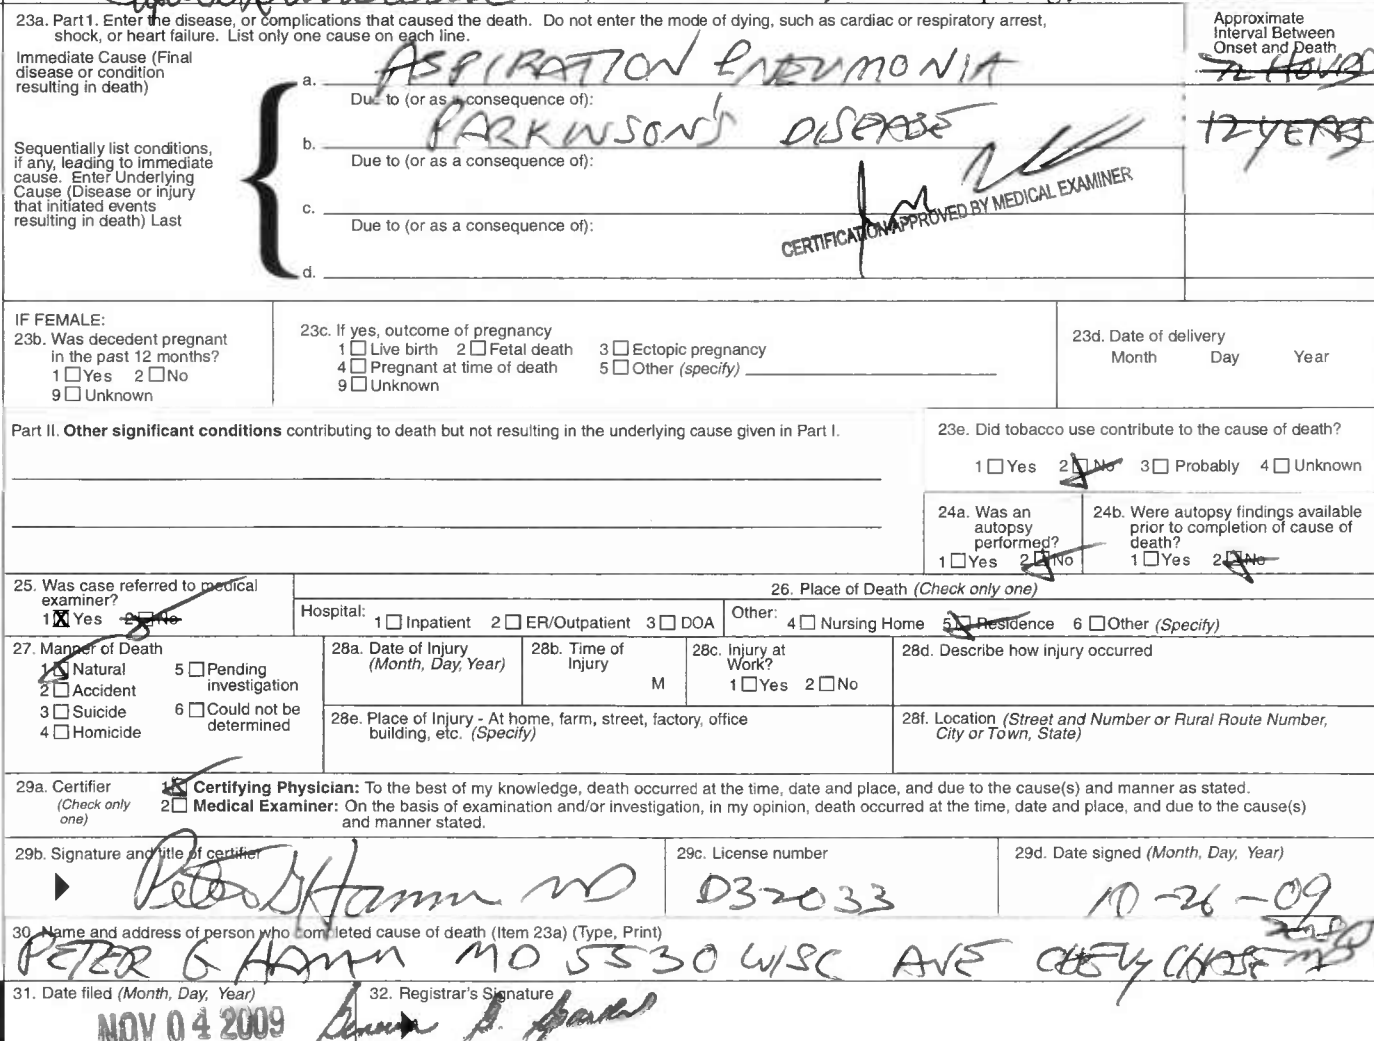 23a. Part1. Enter the disease, or complications that caused the death. Do not enter the mode of dying, such as cardiac or respiratory arrest,
shock, or heart failure. List only one cause on each line.
Approximate
Interval Between
Onset and Death
Immediate Cause (Final
disease or condition
resulting in death)
a. ASPIRATION PNEUMONIA
72 HOURS
Due to (or as a consequence of):
b. PARKINSON'S DISEASE
12 YEARS
Sequentially list conditions,
if any, leading to immediate
cause. Enter Underlying
Cause (Disease or injury
that initiated events
resulting in death) Last
Due to (or as a consequence of):
c.
CERTIFICATION APPROVED BY MEDICAL EXAMINER
Due to (or as a consequence of):
d.
IF FEMALE:
23b. Was decedent pregnant
in the past 12 months?
1 Yes 2 No
9 Unknown
23c. If yes, outcome of pregnancy
1 Live birth 2 Fetal death 3 Ectopic pregnancy
4 Pregnant at time of death 5 Other (specify)
9 Unknown
23d. Date of delivery
Month Day Year
Part II. Other significant conditions contributing to death but not resulting in the underlying cause given in Part I.
23e. Did tobacco use contribute to the cause of death?
1 Yes 2 No 3 Probably 4 Unknown
24a. Was an
autopsy
performed?
1 Yes 2 No
24b. Were autopsy findings available
prior to completion of cause of
death?
1 Yes 2 No
25. Was case referred to medical
examiner?
1 X Yes 2 No
26. Place of Death (Check only one)
Hospital: 1 Inpatient 2 ER/Outpatient 3 DOA
Other: 4 Nursing Home 5 Residence 6 Other (Specify)
27. Manner of Death
1 Natural 5 Pending
investigation
2 Accident
3 Suicide 6 Could not be
determined
4 Homicide
28a. Date of Injury
(Month, Day, Year)
28b. Time of
Injury
M
28c. Injury at
Work?
1 Yes 2 No
28d. Describe how injury occurred
28e. Place of Injury - At home, farm, street, factory, office
building, etc. (Specify)
28f. Location (Street and Number or Rural Route Number,
City or Town, State)
29a. Certifier
(Check only
one)
1 Certifying Physician: To the best of my knowledge, death occurred at the time, date and place, and due to the cause(s) and manner as stated.
2 Medical Examiner: On the basis of examination and/or investigation, in my opinion, death occurred at the time, date and place, and due to the cause(s)
and manner stated.
29b. Signature and title of certifier
Peter G Hamm MD
29c. License number
D32033
29d. Date signed (Month, Day, Year)
10-26-09
30. Name and address of person who completed cause of death (Item 23a) (Type, Print)
PETER G HAMM MD 5530 WISC AVE CHEVY CHASE MD
31. Date filed (Month, Day, Year)
NOV 04 2009
32. Registrar's Signature